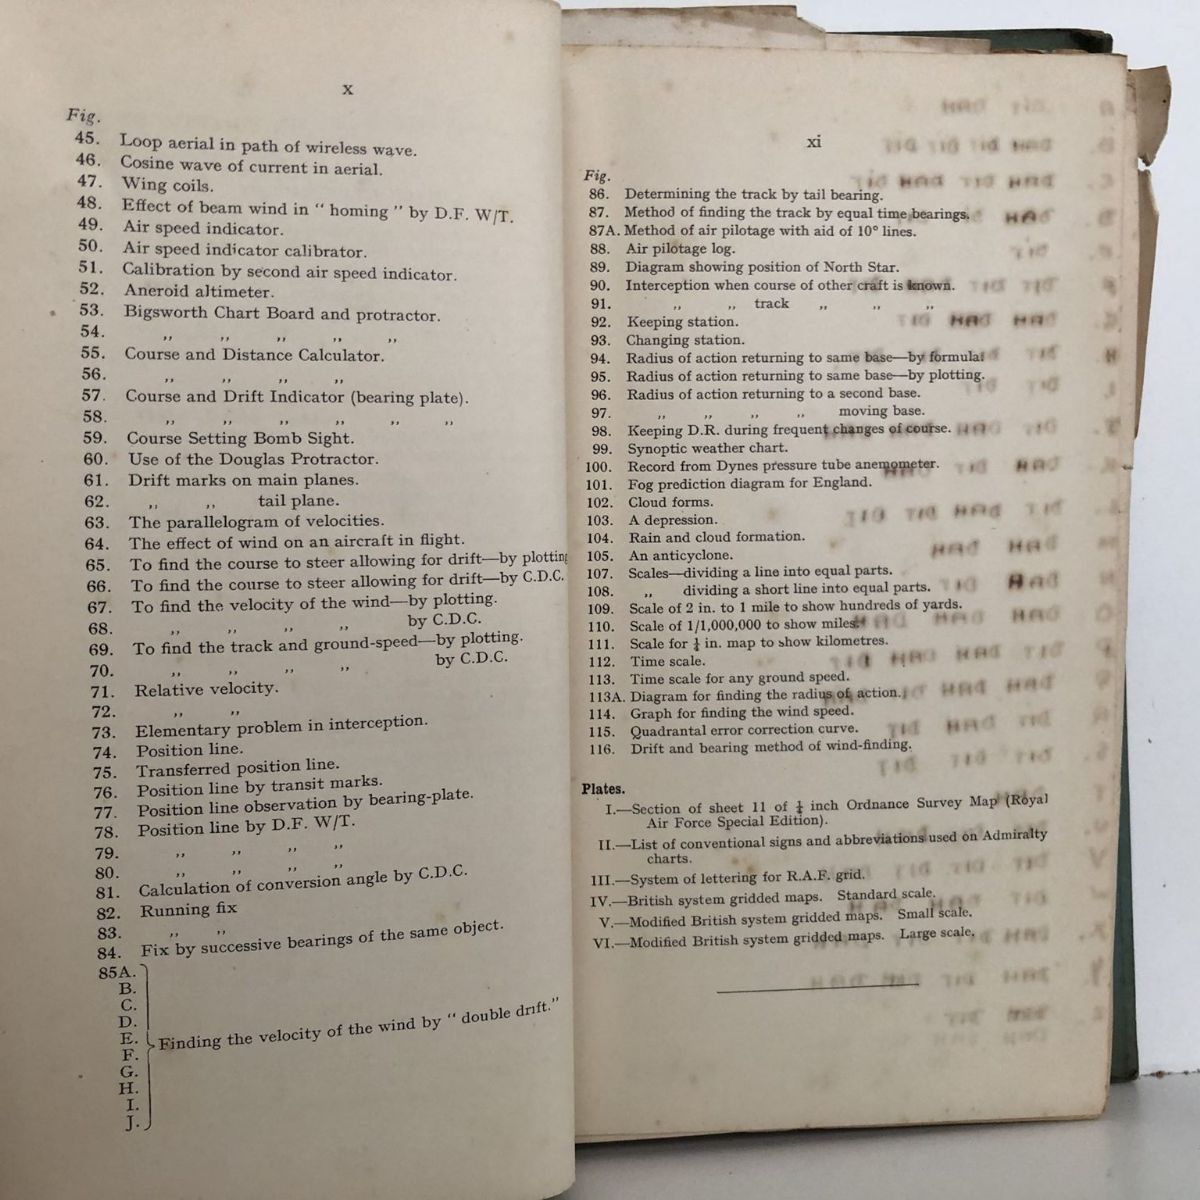 x
Fig.
45. Loop aerial in path of wireless wave.
46. Cosine wave of current in aerial.
47. Wing coils.
48. Effect of beam wind in “ homing ” by D.F. W/T.
49. Air speed indicator.
50. Air speed indicator calibrator.
51. Calibration by second air speed indicator.
52. Aneroid altimeter.
53. Bigsworth Chart Board and protractor.
54. ,, ,, ,, ,, ,,
55. Course and Distance Calculator.
56. ,, ,, ,, ,,
57. Course and Drift Indicator (bearing plate).
58. ,, ,, ,, ,, ,, ,,
59. Course Setting Bomb Sight.
60. Use of the Douglas Protractor.
61. Drift marks on main planes.
62. ,, ,, tail plane.
63. The parallelogram of velocities.
64. The effect of wind on an aircraft in flight.
65. To find the course to steer allowing for drift—by plotting
66. To find the course to steer allowing for drift—by C.D.C.
67. To find the velocity of the wind—by plotting.
68. ,, ,, ,, ,, by C.D.C.
69. To find the track and ground-speed—by plotting.
70. ,, ,, ,, ,, by C.D.C.
71. Relative velocity.
72. ,, ,,
73. Elementary problem in interception.
74. Position line.
75. Transferred position line.
76. Position line by transit marks.
77. Position line observation by bearing-plate.
78. Position line by D.F. W/T.
79. ,, ,, ,, ,,
80. ,, ,, ,, ,,
81. Calculation of conversion angle by C.D.C.
82. Running fix
83. ,, ,,
84. Fix by successive bearings of the same object.
85A.
B.
C.
D.
E. Finding the velocity of the wind by “ double drift.”
F.
G.
H.
I.
J.
xi
Fig.
86. Determining the track by tail bearing.
87. Method of finding the track by equal time bearings.
87A. Method of air pilotage with aid of 10° lines.
88. Air pilotage log.
89. Diagram showing position of North Star.
90. Interception when course of other craft is known.
91. ,, ,, track ,, ,, ,,
92. Keeping station.
93. Changing station.
94. Radius of action returning to same base—by formula.
95. Radius of action returning to same base—by plotting.
96. Radius of action returning to a second base.
97. ,, ,, ,, ,, moving base.
98. Keeping D.R. during frequent changes of course.
99. Synoptic weather chart.
100. Record from Dynes pressure tube anemometer.
101. Fog prediction diagram for England.
102. Cloud forms.
103. A depression.
104. Rain and cloud formation.
105. An anticyclone.
107. Scales—dividing a line into equal parts.
108. ,, dividing a short line into equal parts.
109. Scale of 2 in. to 1 mile to show hundreds of yards.
110. Scale of 1/1,000,000 to show miles.
111. Scale for ¼ in. map to show kilometres.
112. Time scale.
113. Time scale for any ground speed.
113A. Diagram for finding the radius of action.
114. Graph for finding the wind speed.
115. Quadrantal error correction curve.
116. Drift and bearing method of wind-finding.
Plates.
I.—Section of sheet 11 of ¼ inch Ordnance Survey Map (Royal
Air Force Special Edition).
II.—List of conventional signs and abbreviations used on Admiralty
charts.
III.—System of lettering for R.A.F. grid.
IV.—British system gridded maps. Standard scale.
V.—Modified British system gridded maps. Small scale.
VI.—Modified British system gridded maps. Large scale.